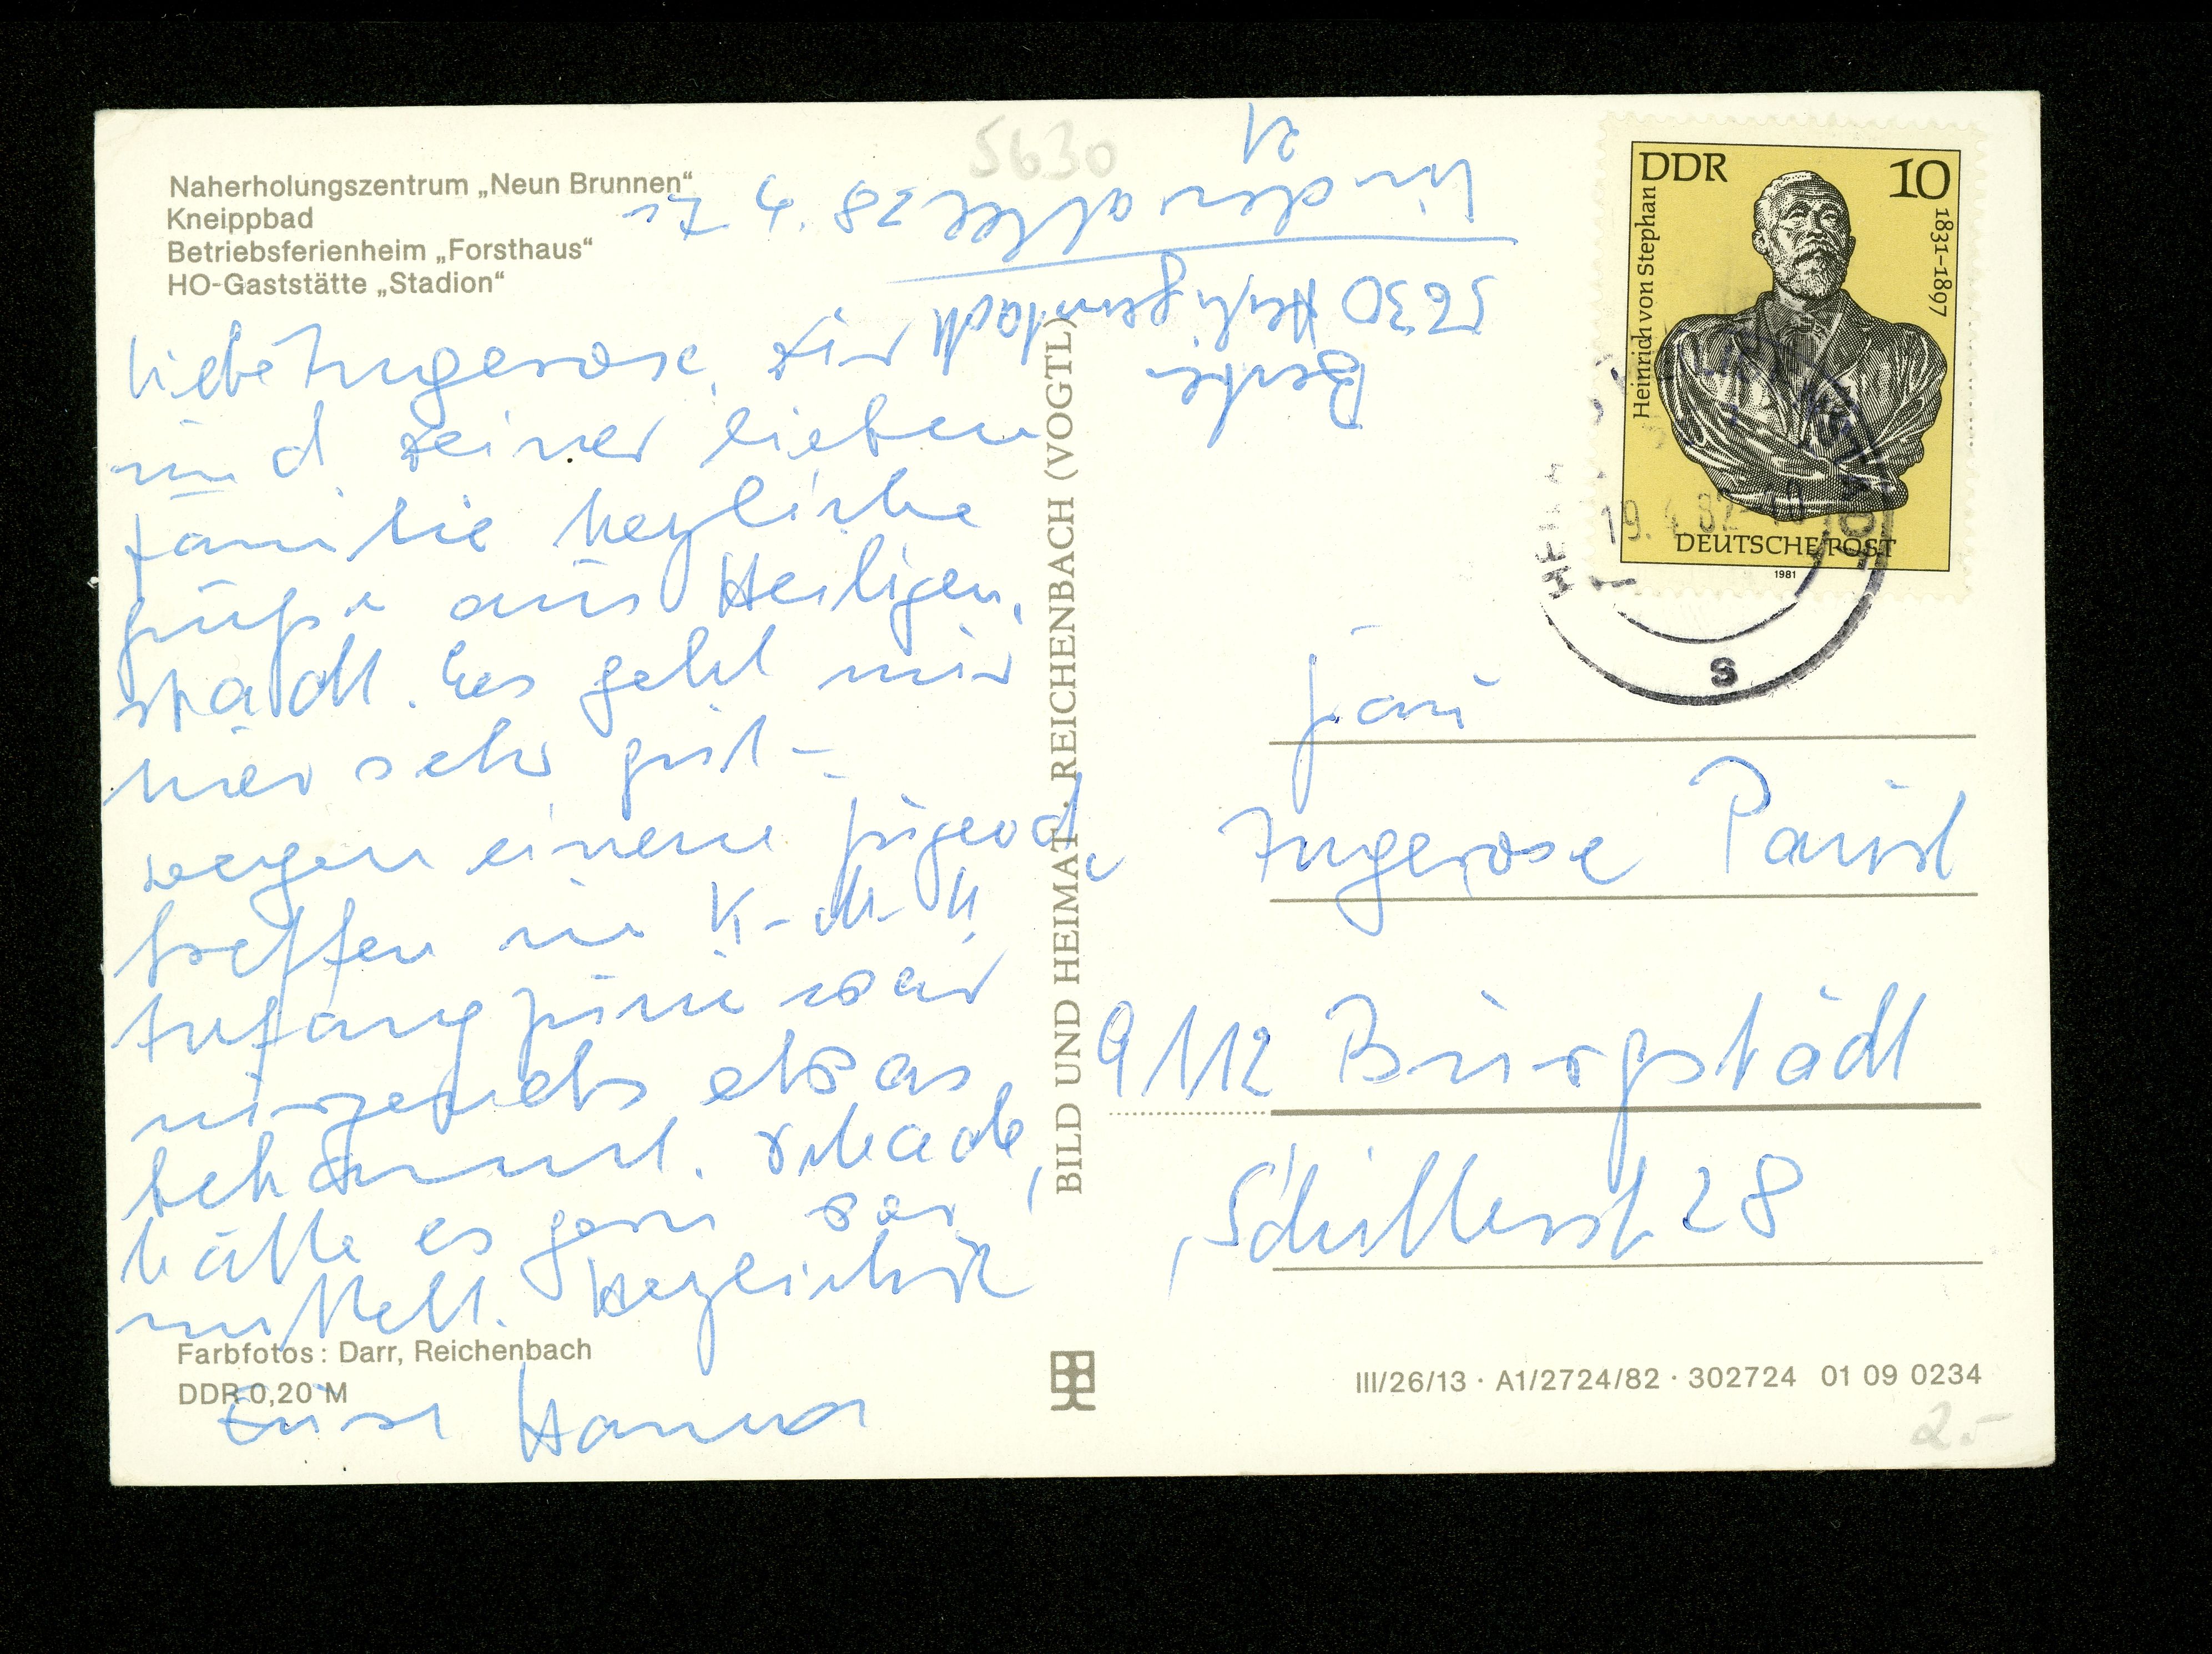 Naherholungszentrum „Neun Brunnen“
Kneippbad
Betriebsferienheim „Forsthaus“
HO-Gaststätte „Stadion“
5630
21
Lindenallee 28.4.
5630 Heiligenstadt
DDR 10
Heinrich von Stephan
1831–1897
DEUTSCHE POST
1981
19. 4. 82-10
S
Liebe Ingerose, Dir
und Deiner lieben
Familie herzliche
Grüße aus Heiligen-
stadt. Es geht mir
hier sehr gut –
wegen einem Jugend-
treffen in K-M-St.
Anfang Juni war
nirgends etwas
bekannt. Schade,
hätte es gern
Herzlichst
Eure Hanna
BILD UND HEIMAT · REICHENBACH (VOGTL)
Frau
Ingerose
9112 Burgstädt
Schillerstr. 28
Farbfotos: Darr, Reichenbach
DDR 0,20 M
III/26/13 · A1/2724/82 · 302724 01 09 0234
2.–